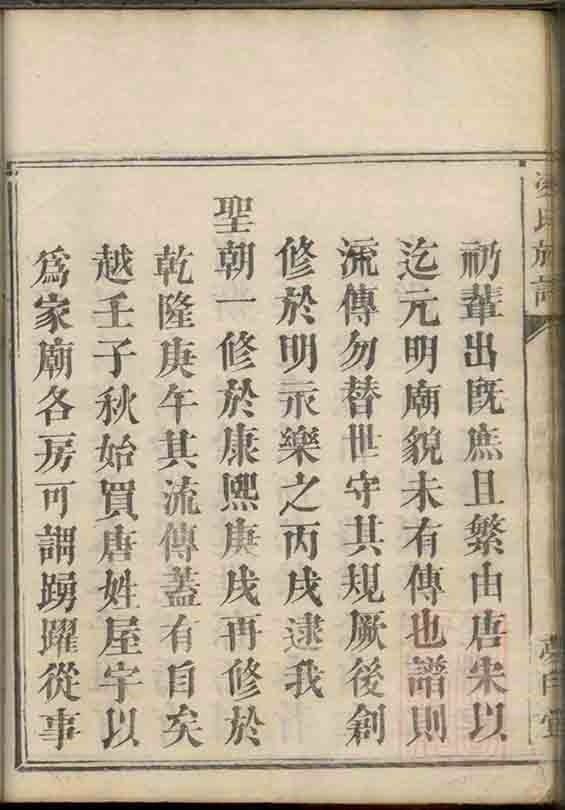 祊輩出既庶且繁由唐宋以
迄元明廟貌未有傳也譜則
流傳勿替世守其規厥後創
修於明永樂之丙戌逮我
聖朝一修於康熙庚戌再修於
乾隆庚午其流傳蓋有自矣
越壬子秋始買唐姓屋宇以
為家廟各房可謂踴躍從事